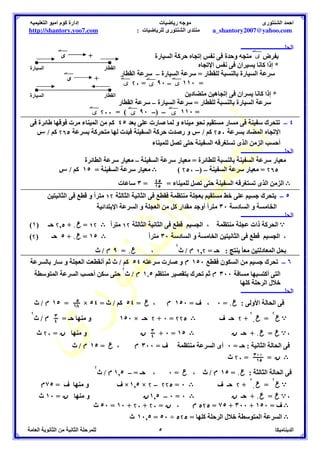 احمد الشنتوري موجه رياضيات إدارة كوم امبو التعليميه
http://shantory.yoo7.com منتدى الشنتوري للرياضيات : a_shantory2007@yahoo.com
الحل
بفرض ى متجه وحدة فى نفس إتجاه حركة السيارة
* إذا كانا يسيران فى نفس الإتجاه
سرعة السيارة بالنسبة للقطار = سرعة السيارة – سرعة القطار
= ١١٠ ى – ٩٠ ى = ٢٠ ى
* إذا كانا يسيران فى إتجاهين متضادين
سرعة السيارة بالنسبة للقطار = سرعة السيارة – سرعة القطار
= ١١٠ ى – ( – ٩٠ ى ) = ٢٠٠ ى
+ ى
القطار السيارة
+ ى
القطار السيارة
٤ – تتحرك سفينة فى مسار مستقيم نحو ميناء و لما صارت على بعد ٤٥ كم من الميناء مرت فوقها طائرة فى
الإتجاه المضاد بسرعة ٢٥٠ كم / س و رصدت حركة السفينة فبدت لها متحركة بسرعة ٢٦٥ كم / س
أحسب الزمن الذى تستغرقه السفينة حتى تصل للميناء
الحل
معيار سرعة السفينة بالنسبة للطائرة = معيار سرعة السفينة – معيار سرعة الطائرة
٢٦٥ = معيار سرعة السفينة – ( – ٢٥٠ ) ∴ معيار سرعة السفينة = ١٥ كم / س
∴ الزمن الذى تستغرقه السفينة حتى تصل للميناء = ٤٥/١٥ = ٣ ساعات
٥ – يتحرك جسيم على خط مستقيم بعجلة منتظمة فقطع فى الثانية الثالثة ١٢ مترأ و قطع فى الثانيتين
الخامسة و السادسة ٣٠ مترأ أوجد مقدار كل من العجلة و السرعة الإبتدائية
الحل
∵ الحركة ذات عجلة منتظمة ، الجسيم قطع فى الثانية الثالثة ١٢ مترأ ∴ ١٢ = ع. + ٢,٥ حـ (١)
، الجسيم قطع فى الثانيتين الخامسة و السادسة ٣٠ مترأ ∴ ١٥ = ع. + ٥ حـ (٢)
بحل المعادلتين معأ ينتج : حـ = ١,٢ م / ث٢ ، ع. = ٩ م / ث
٦ – تحرك جسيم من السكون فقطع ١٥٠ م و صارت سرعته ٥٤ كم / ث ثم أنقطعت العجلة و سار بالسرعة
التى أكتسبها مسافة ٣٠٠ م ثم تحرك بتقصير منتظم ١,٥ م / ث٢ حتى سكن أحسب السرعة المتوسطة
خلال الرحلة كلها
الحل
فى الحالة الأولى : ع. = ٠ ، ف = ١٥٠ م ، ع = ٥٤ كم / ث = ٥٤ × ٥/١٨ = ١٥ م / ث
∵ ع٢ = ع.٢ + ٢ حـ ف ∴ ٢٢٥ = ٠ + ٢ حـ × ١٥٠ و منها حـ = ٣/٤ م / ث٢
، ∵ ع = ع. + حـ ن ∴ ١٥ = ٠ + ٣/٤ ن و منها ن = ٢٠ ث
فى الحالة الثانية : حـ = ٠ أى السرعة منتظمة ف = ٣٠٠ م ، ع = ١٥ م / ث
∴ ن = ٣٠٠/١٥ = ٢٠ ث
فى الحالة الثالثة : ع. = ١٥ م / ث ، ع = ٠ ، حـ = – ١,٥ م / ث٢
∵ ع٢ = ع.٢ + ٢ حـ ف ∴ ٠ = ٢٢٥ – ٢ × ١,٥ × ف و منها ف = ٧٥ م
، ∵ ع = ع. + حـ ن ∴ ٠ = ١٥ – ١,٥ ن و منها ن = ١٠ ث
∴ ف = ١٥٠ + ٣٠٠ + ٧٥ = ٥٢٥ م ، ن = ٢٠ + ٢٠ + ١٠ = ٥٠ ث
∴ السرعة المتوسطة خلال الرحلة كلها = ٥٢٥ ÷ ٥٠ = ١٠,٥ ث
الديناميكا ٥ للمرحلة الثانية من الثانوية العامة